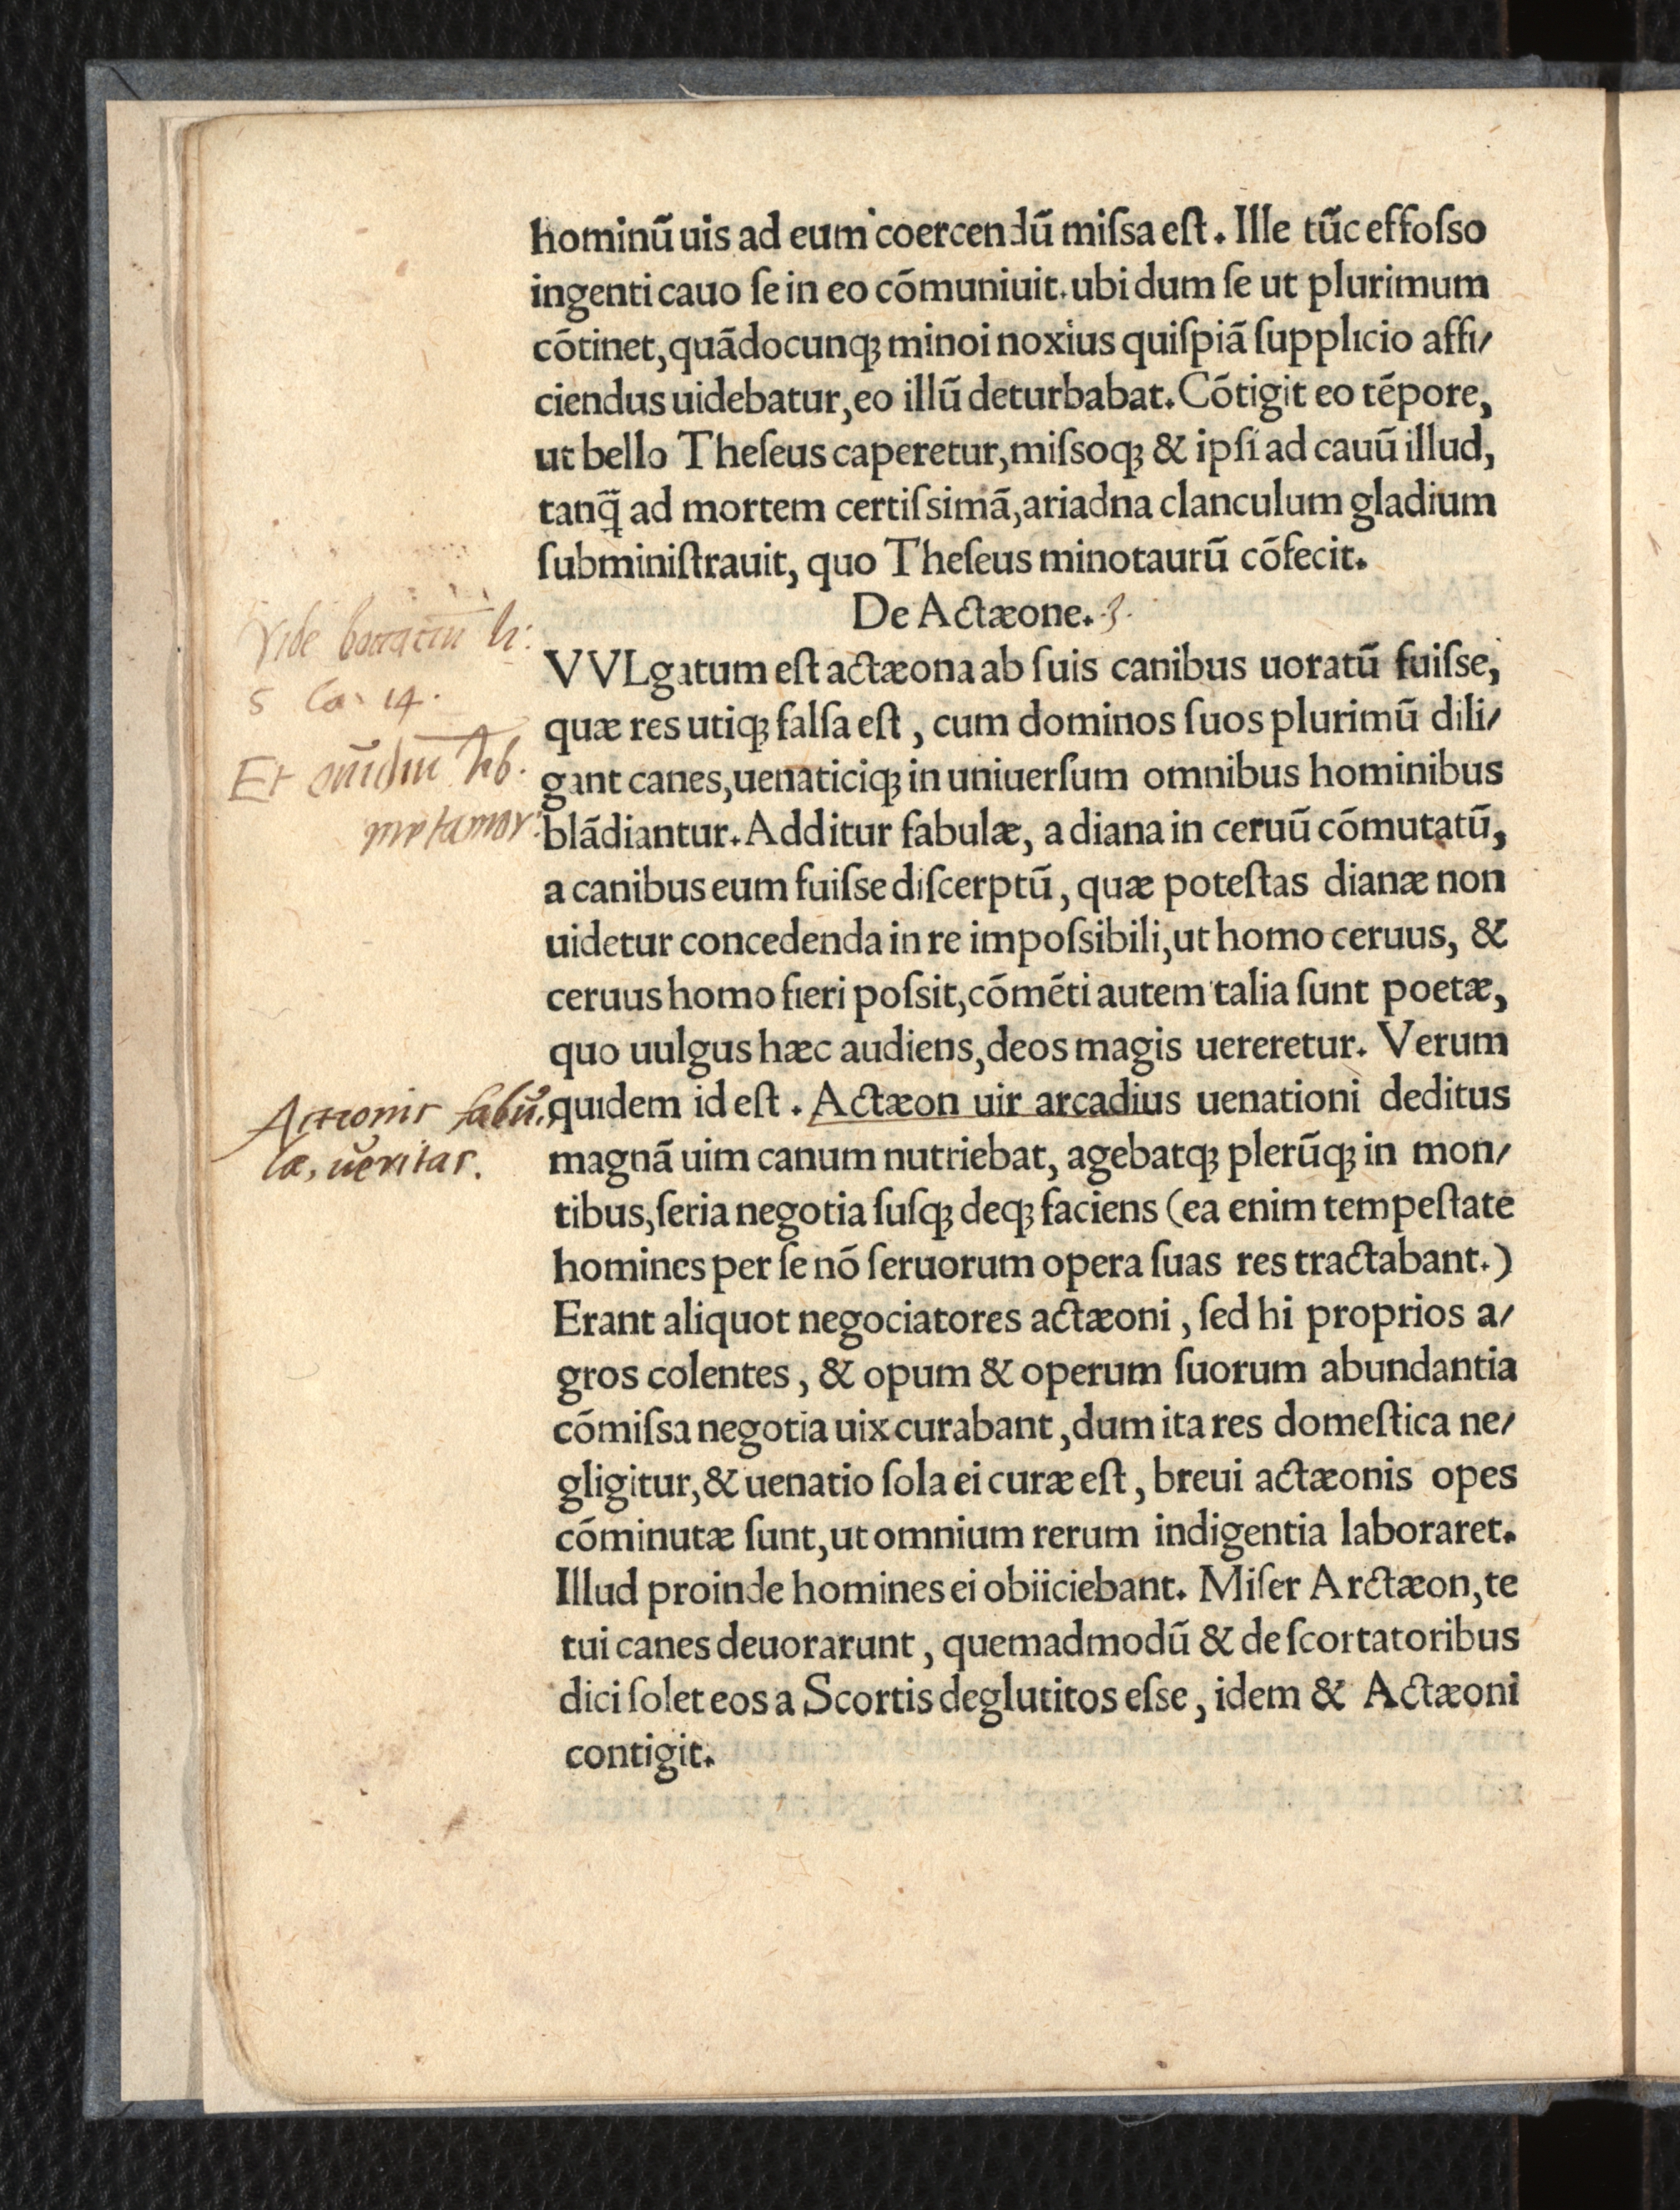 hominū uis ad eum coercendū miſsa eſt. Ille tūc effoſso
ingenti cauo ſe in eo cōmuniuit. ubi dum ſe ut plurimum
cōtinet, quādocunqꝫ minoi noxius quiſpiā ſupplicio affi/
ciendus uidebatur, eo illū deturbabat. Cōtigit eo tēpore,
ut bello Theſeus caperetur, miſsoqꝫ & ipſi ad cauū illud,
tanq̄ ad mortem certiſsimā, ariadna clanculum gladium
ſubminiſtrauit, quo Theſeus minotaurū cōfecit.
De Actæone. 3.
Vide boccatiū li:
5 Ca. 14.
Et ouidiū lib.
metamor.
VVLgatum eſt actæona ab ſuis canibus uoratū fuiſse,
quæ res utiqꝫ falſa eſt, cum dominos ſuos plurimū dili/
gant canes, uenaticiqꝫ in uniuerſum omnibus hominibus
blādiantur. Additur fabulæ, a diana in ceruū cōmutatū,
a canibus eum fuiſse diſcerptū, quæ poteſtas dianæ non
uidetur concedenda in re impoſsibili, ut homo ceruus, &
ceruus homo fieri poſsit, cōmēti autem talia ſunt poetæ,
quo uulgus hæc audiens, deos magis uereretur. Verum
quidem id eſt. Actæon uir arcadius uenationi deditus
magnā uim canum nutriebat, agebatqꝫ plerūqꝫ in mon/
tibus, ſeria negotia ſuſqꝫ deqꝫ faciens (ea enim tempeſtate
homines per ſe nō ſeruorum opera ſuas res tractabant.)
Erant aliquot negociatores actæoni, ſed hi proprios a/
gros colentes, & opum & operum ſuorum abundantia
cōmiſsa negotia uix curabant, dum ita res domeſtica ne/
gligitur, & uenatio ſola ei curæ eſt, breui actæonis opes
cōminutæ ſunt, ut omnium rerum indigentia laboraret.
Illud proinde homines ei obiiciebant. Miſer Arctæon, te
tui canes deuorarunt, quemadmodū & de ſcortatoribus
dici ſolet eos a Scortis deglutitos eſse, idem & Actæoni
contigit.
Acteonis fabu,
læ, ueritas.